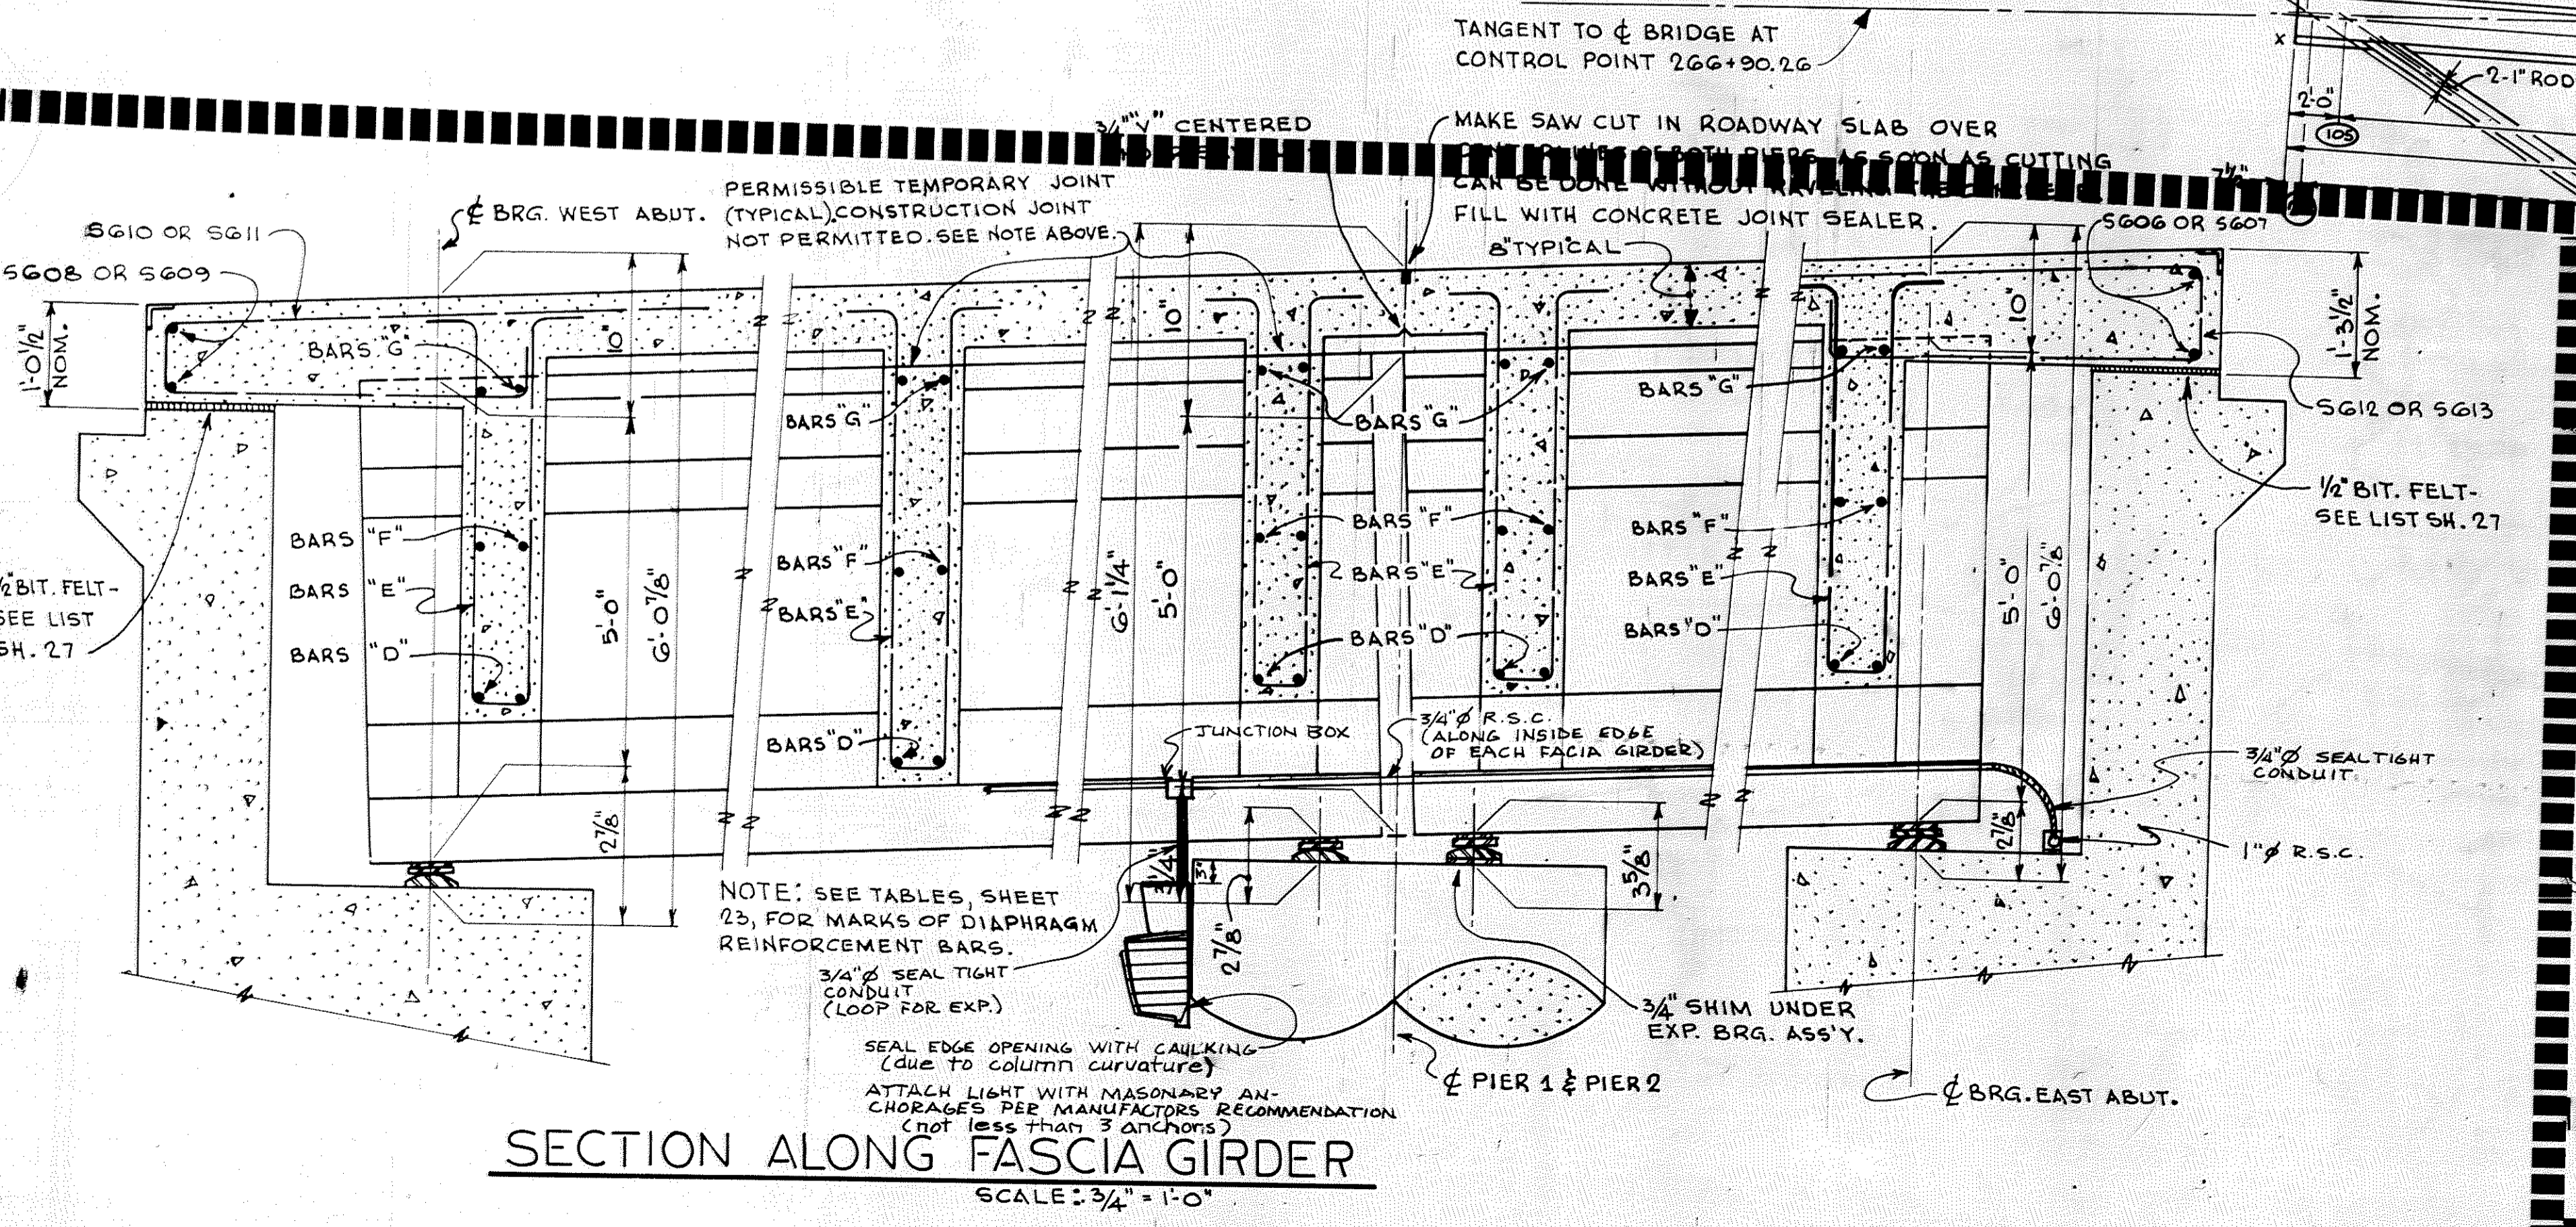 TANGENT TO ℄ BRIDGE AT
CONTROL POINT 266+90.26
X
2-1" ROD
2'-0"
105
3/4" "V" CENTERED
MAKE SAW CUT IN ROADWAY SLAB OVER
OF BOTH PIERS AS SOON AS CUTTING
CAN BE DONE WITHOUT RAVELING
FILL WITH CONCRETE JOINT SEALER.
7 1/2"
PERMISSIBLE TEMPORARY JOINT
(TYPICAL). CONSTRUCTION JOINT
NOT PERMITTED. SEE NOTE ABOVE.
℄ BRG. WEST ABUT.
S610 OR S611
S608 OR S609
8" TYPICAL
S606 OR S607
1'-0 1/2"
NOM.
BARS "G"
10"
10"
10"
1'-3 1/2"
NOM.
BARS "G"
BARS "G"
BARS "G"
S612 OR S613
1/2" BIT. FELT-
SEE LIST SH. 27
BARS "F"
BARS "E"
BARS "D"
5'-0"
6'-0 7/8"
BARS "F"
BARS "E"
BARS "D"
6'-1 1/4"
5'-0"
BARS "F"
2 BARS "E"
BARS "D"
BARS "F"
BARS "E"
BARS "D"
5'-0"
6'-0 7/8"
1/2" BIT. FELT-
SEE LIST
SH. 27
JUNCTION BOX
3/4"Ø R.S.C.
(ALONG INSIDE EDGE
OF EACH FACIA GIRDER)
3/4"Ø SEALTIGHT
CONDUIT
1"Ø R.S.C.
2 7/8"
3"
2 7/8"
3 5/8"
2 7/8"
NOTE: SEE TABLES, SHEET
23, FOR MARKS OF DIAPHRAGM
REINFORCEMENT BARS.
3/4"Ø SEAL TIGHT
CONDUIT
(LOOP FOR EXP.)
SEAL EDGE OPENING WITH CAULKING
(due to column curvature)
ATTACH LIGHT WITH MASONARY AN-
CHORAGES PER MANUFACTORS RECOMMENDATION
(not less than 3 anchors)
3/4" SHIM UNDER
EXP. BRG. ASS'Y.
℄ PIER 1 & PIER 2
℄ BRG. EAST ABUT.
SECTION ALONG FASCIA GIRDER
SCALE: 3/4" = 1'-0"